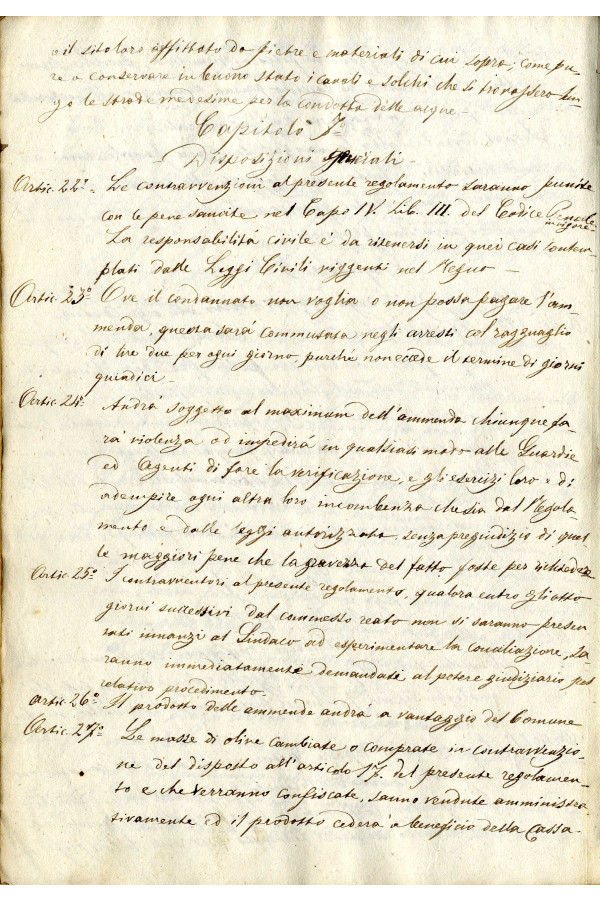 o il sito loro affittato da pietre e materiali di cui sopra; come pu-
re a conservare in buono stato i canali e solchi che si trovassero lun-
go le strade medesime per la condotta delle acque -
Capitolo 7.o
Disposizioni Generali -
Artic. 22.o - Le contravvenzioni al presente regolamento saranno punite
con le pene sancite nel Capo IV. Lib. III. del Codice Penale
in vigore -
La responsabilità civile è da ritenersi in quei casi contem-
plati dalle Leggi Civili viggenti nel Regno -
Artic. 23.o Ove il condannato non voglia o non possa pagare l'am-
menda, questa sarà commutata negli arresti col ragguaglio
di lire due per ogni giorno, purchè non eccede il termine di giorni
quindici -
Artic. 24.o Andrà soggetto al maximum dell'ammenda chiunque fa-
rà violenza od impedirà in qualsiasi modo alle Guardie
ed Agenti di fare la verificazione, e gli esercizi loro e di
adempire ogni altra loro incombenza che sia dal Regola
mento e dalle leggi autorizzata, senza pregiudizio di quel
le maggiori pene che la gravezza del fatto fosse per richiedere
Artic. 25.o I contravventori al presente regolamento, qualora entro gli otto
giorni successivi dal commesso reato non si saranno presen
tati innanzi al Sindaco ad esperimentare la conciliazione, sa-
ranno immediatamente demandati al potere giudiziario pel
relativo procedimento.
Artic. 26.o Il prodotto delle ammende andrà a vantaggio del Comune
Artic. 27.o Le masse di olive cambiate o comprate in contravvenzio-
ne del disposto all'articolo 17. del presente regolamen-
to e che verranno confiscate, sanno vendute amministra-
tivamente ed il prodotto cederà a beneficio della Cassa -